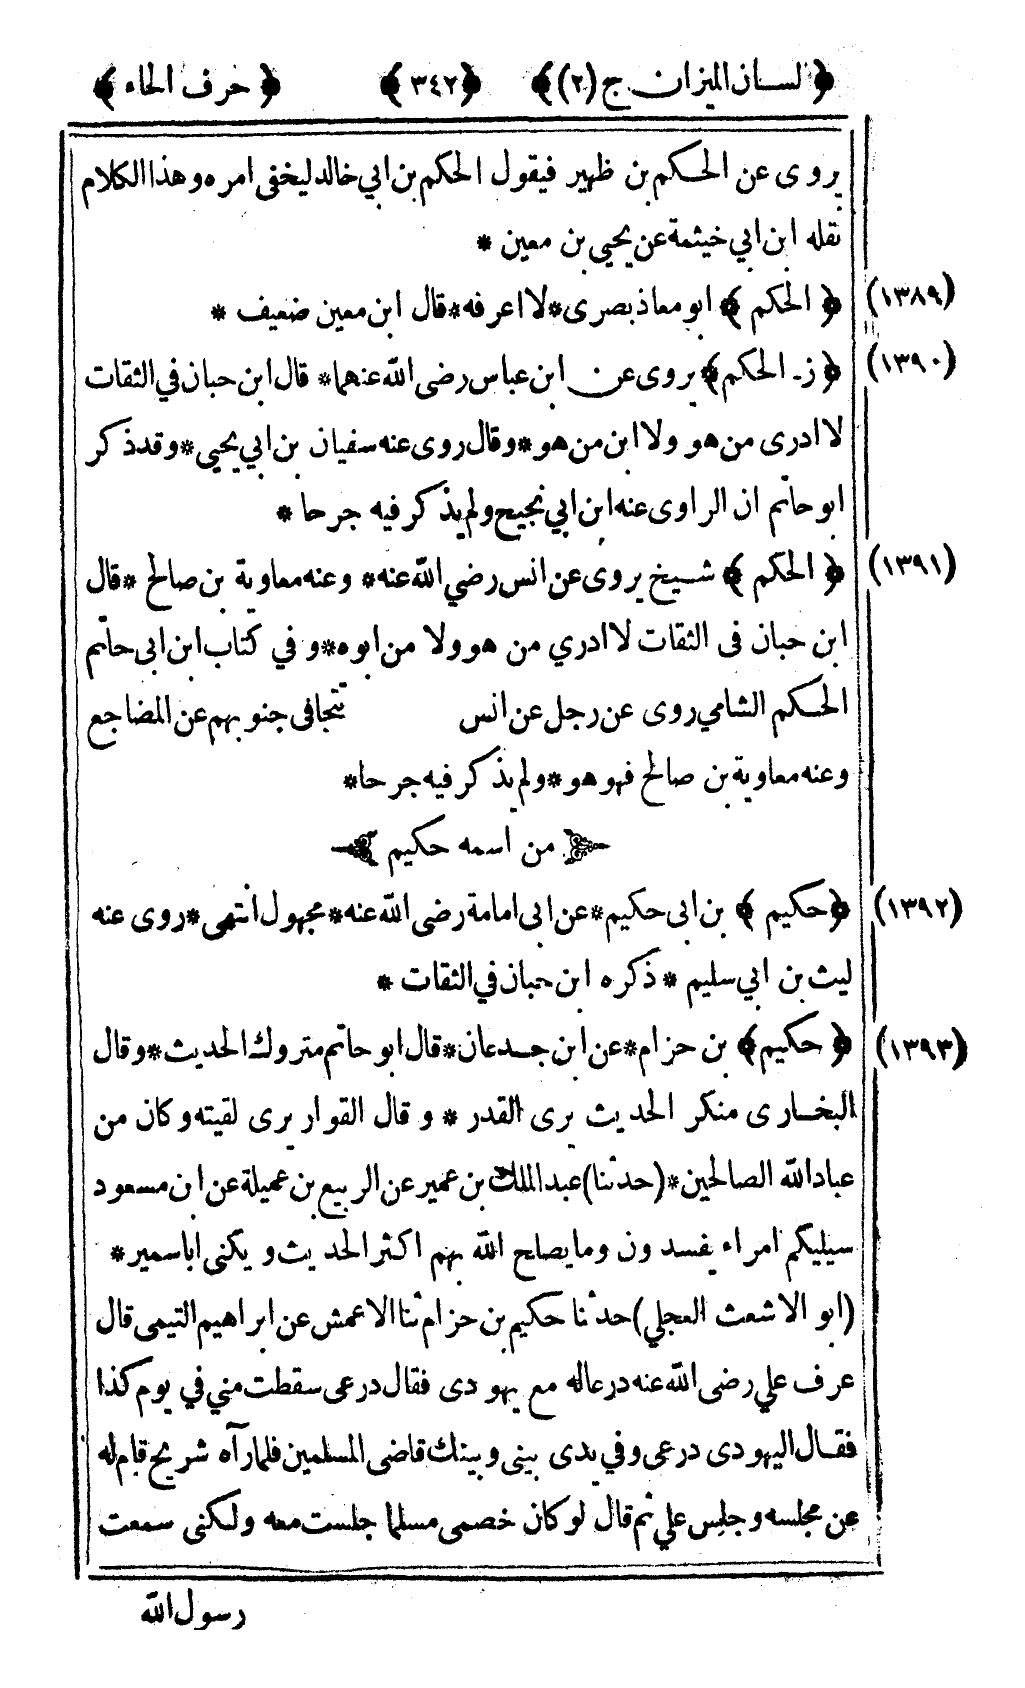 ﴿ لسان الميزان ج (٢) ﴾ ﴿ ٣٤٢ ﴾ ﴿ حرف الحاء ﴾
يروى عن الحكم بن ظهير فيقول الحكم بن ابي خالد ليخفى امره وهذا الكلام
نقله ابن ابي خيثمة عن يحيى بن معين *
(١٣٨٩) ﴿ الحكم ﴾ ابو معاذ بصرى * لا اعرفه * قال ابن معين ضعيف *
(١٣٩٠) ﴿ ز - الحكم ﴾ يروى عن ابن عباس رضى الله عنهما * قال ابن حبان في الثقات
لا ادرى من هو ولا ابن من هو * وقال روى عنه سفيان بن ابي يحيى * وقد ذكر
ابو حاتم ان الراوى عنه ابن ابي نجيح ولم يذكر فيه جرحا *
(١٣٩١) ﴿ الحكم ﴾ شيخ يروى عن انس رضي الله عنه * وعنه معاوية بن صالح * قال
ابن حبان فى الثقات لا ادري من هو ولا من ابوه * و في كتاب ابن ابى حاتم
الحكم الشامي روى عن رجل عن انس تتجافى جنوبهم عن المضاجع
وعنه معاوية بن صالح فهو هو * ولم يذكر فيه جرحا *
من اسمه حكيم
(١٣٩٢) ﴿ حكيم ﴾ بن ابى حكيم * عن ابى امامة رضى الله عنه * مجهول انتهى * روى عنه
ليث بن ابي سليم * ذكره ابن حبان في الثقات *
(١٣٩٣) ﴿ حكيم ﴾ بن حزام * عن ابن جدعان * قال ابو حاتم متروك الحديث * وقال
البخارى منكر الحديث يرى القدر * و قال القواريرى لقيته وكان من
عباد الله الصالحين * (حدثنا) عبد الملك بن عمير عن الربيع بن عميلة عن ابن مسعود
سيليكم امراء يفسدون وما يصلح الله بهم اكثر الحديث و يكنى ابا سمير *
(ابو الاشعث العجلي) حدثنا حكيم بن حزام ثنا الاعمش عن ابراهيم التيمى قال
عرف علي رضى الله عنه درعا له مع يهودى فقال درعى سقطت مني في يوم كذا
فقال اليهودى درعى و في يدى بينى و بينك قاضى المسلمين فلما رآه شريح قام له
عن مجلسه و جلس علي ثم قال لو كان خصمى مسلما جلست معه ولكنى سمعت
رسول الله